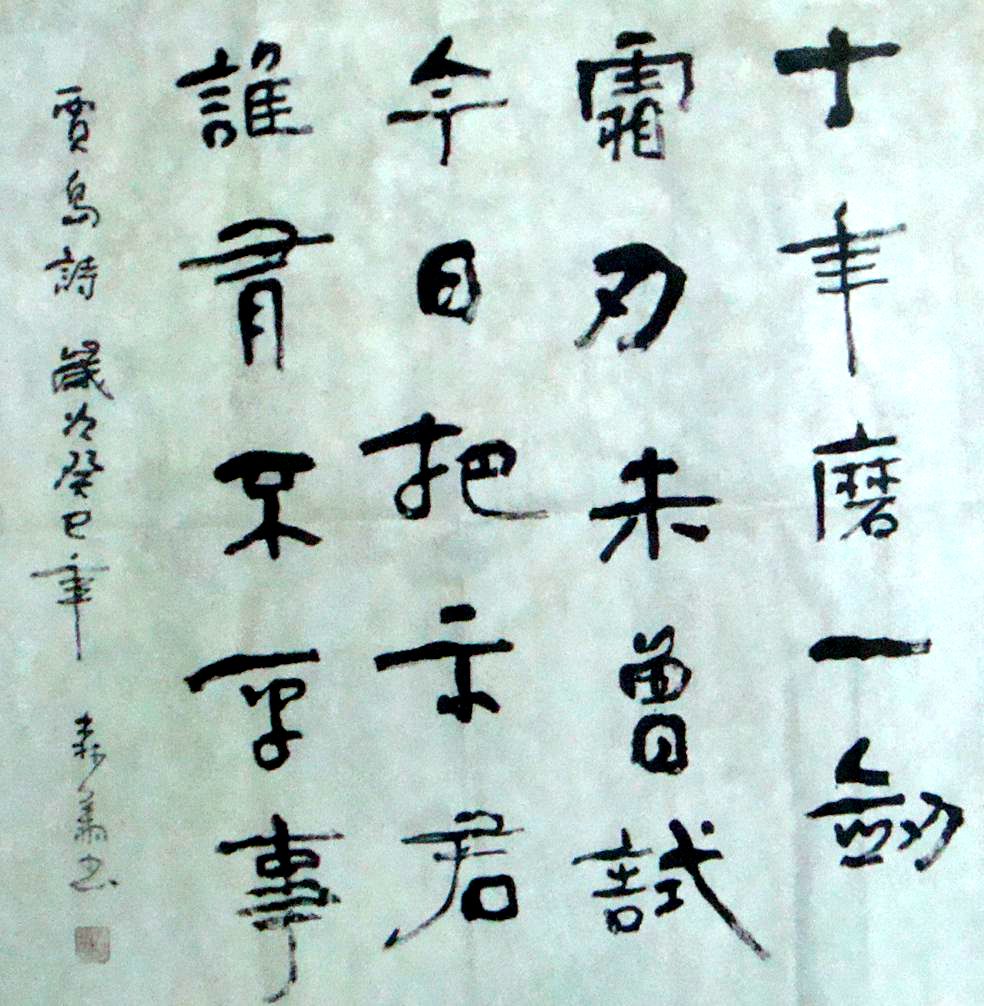 十年磨一劍
霜刃未曾試
今日把示君
誰有不平事
賈島詩 歲次癸巳年 書